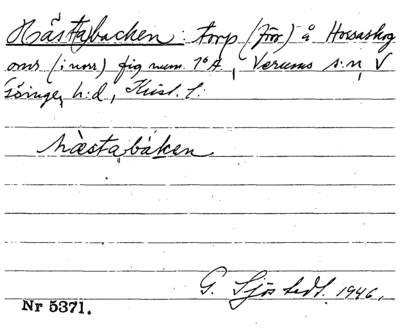 Hästabacken: torp (förr) å Horsaskog
oms (inns) fig num. 1º A, Verums s:n, V
Göinge h:d, Krist. l.
hæstabáken
G. Sjöstedt. 1946.
Nr 5371.